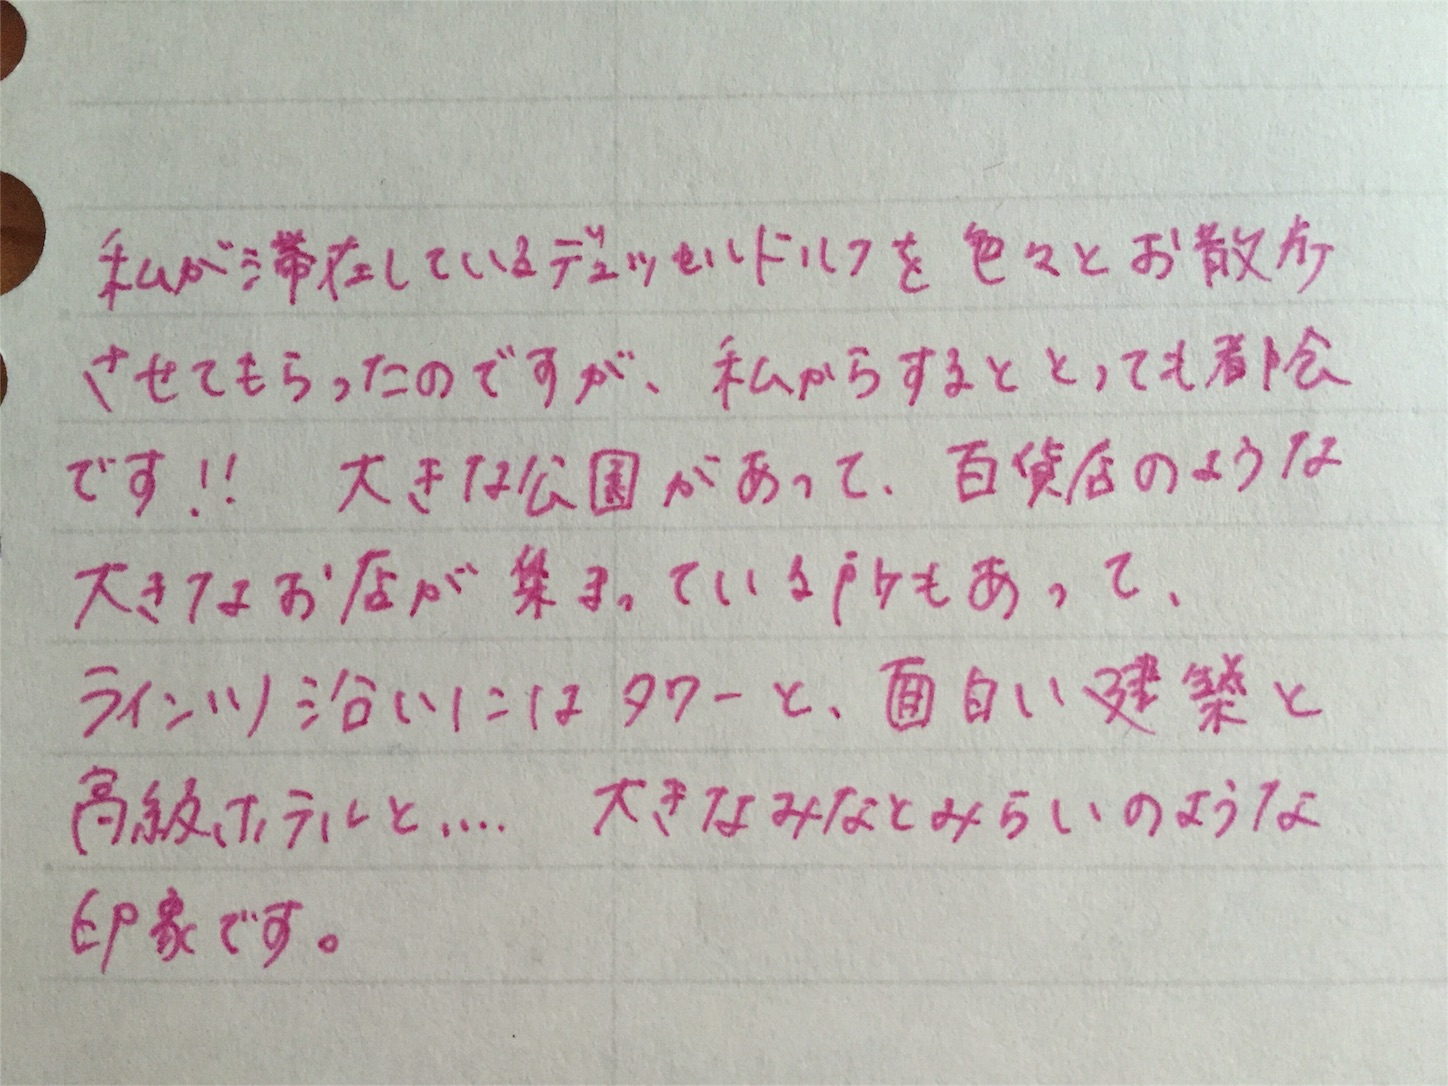 私が滞在しているデュッセルドルフを色々とお散歩
させてもらったのですが、私からするととっても都会
です!!　大きな公園があって、百貨店のような
大きなお店が集まっている所もあって、
ライン川沿いにはタワーと、面白い建築と
高級ホテルと....　大きなみなとみらいのような
印象です。